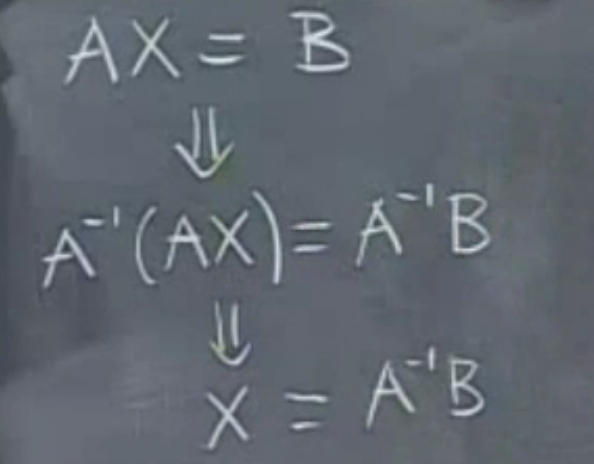 AX = B
⇓
A⁻¹(AX) = A⁻¹B
⇓
X = A⁻¹B